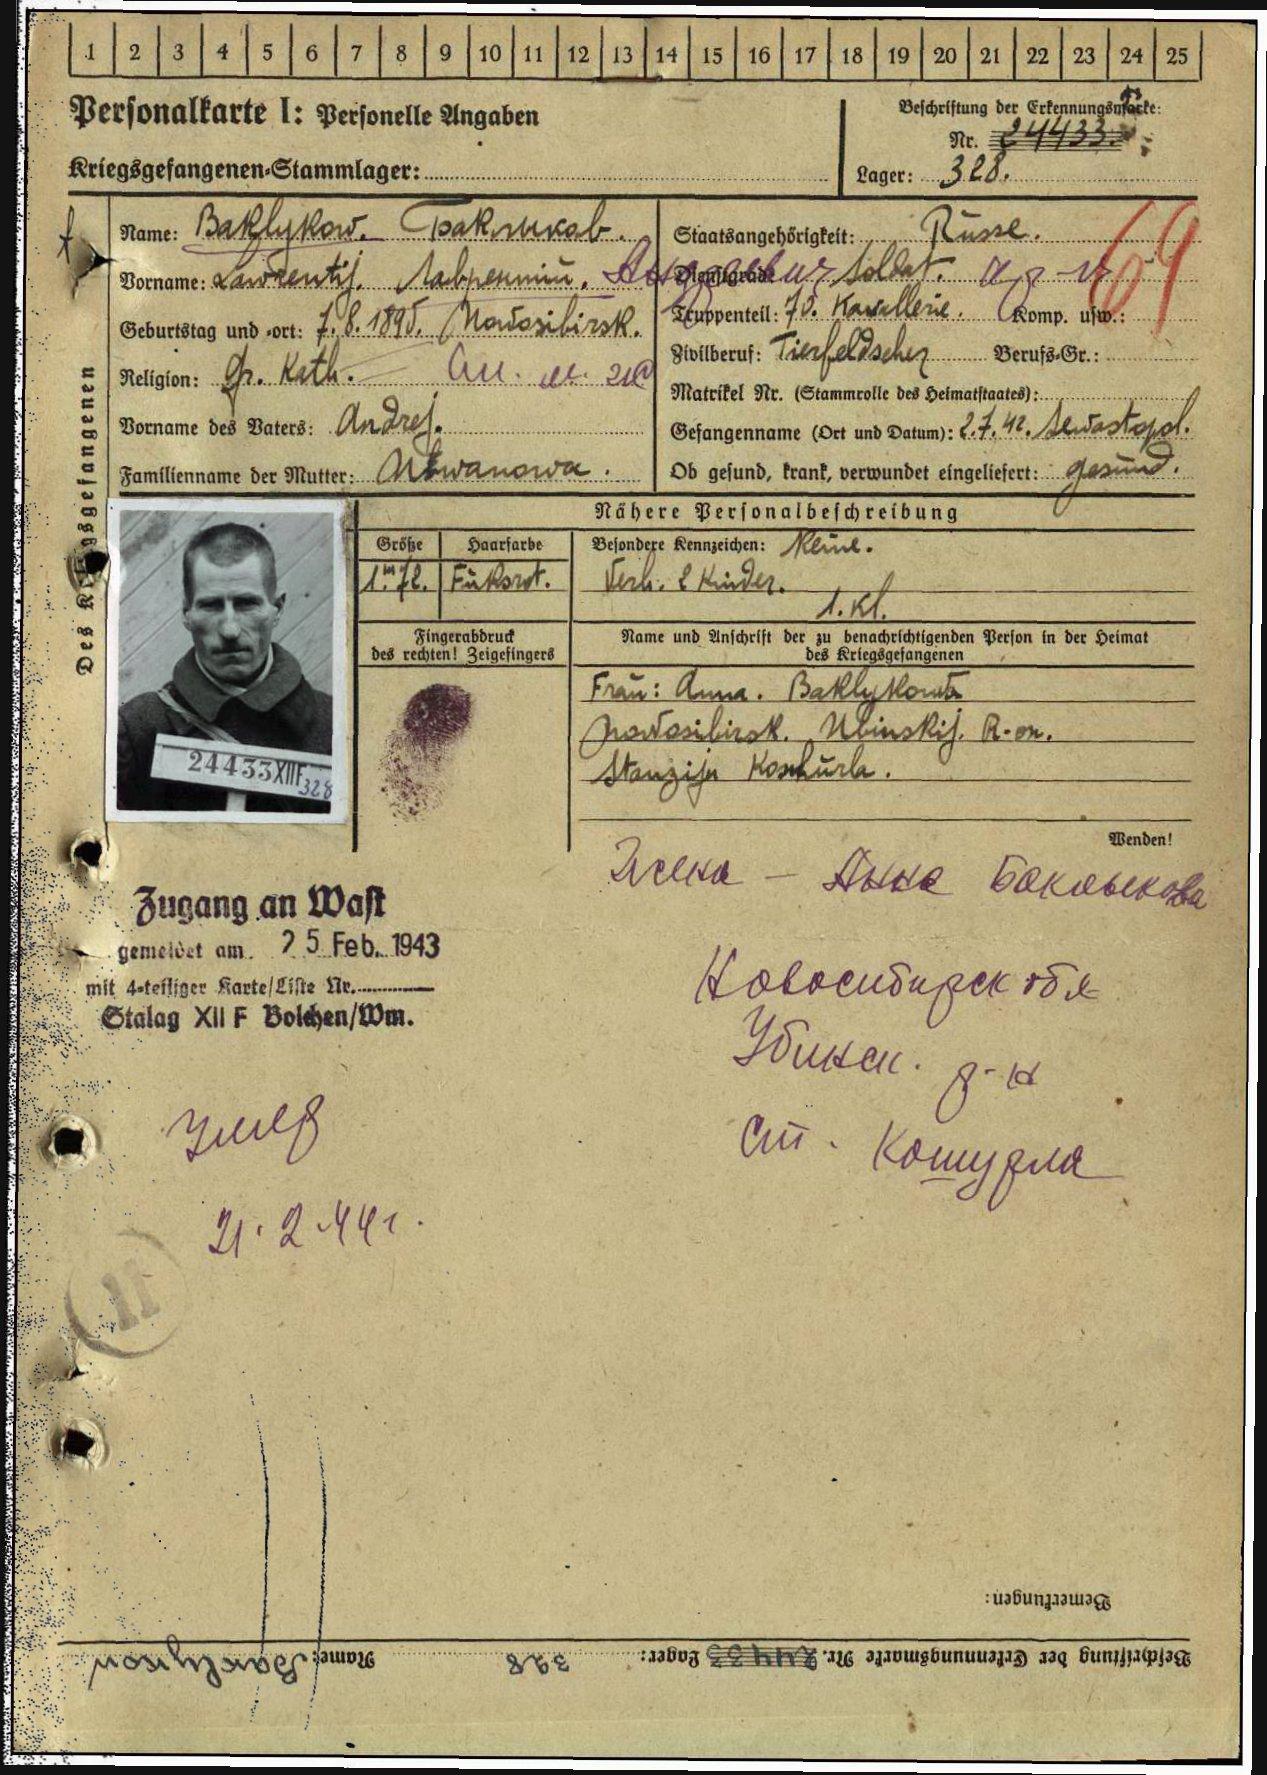 1 2 3 4 5 6 7 8 9 10 11 12 13 14 15 16 17 18 19 20 21 22 23 24 25
Personalkarte I: Personelle Angaben
Kriegsgefangenen-Stammlager:
Beschriftung der Erkennungsmarke:
Nr. 24433.
Lager: 328.
Des Kriegsgefangenen
Name: Baklykow. Баклыков.
Vorname: Lawrentij. Лаврентий.
Geburtstag und -ort: 7.8.1895. Nowosibirsk.
Religion: Gr. Kath.
Vorname des Vaters: Andrej.
Familienname der Mutter:
Staatsangehörigkeit: Russe.
Dienstgrad: Soldat.
Truppenteil: 70. Kavallerie. Komp. usw.:
69
Zivilberuf: Tierfeldscher Berufs-Gr.:
Matrikel Nr. (Stammrolle des Heimatstaates):
Gefangenname (Ort und Datum): 2.7.42. Sewastopol.
Ob gesund, krank, verwundet eingeliefert: gesund.
Nähere Personalbeschreibung
Größe Haarfarbe Besondere Kennzeichen: Keine.
1m 72.
Verh. 2 Kinder.
1. Kl.
Fingerabdruck
des rechten! Zeigefingers
Name und Anschrift der zu benachrichtigenden Person in der Heimat
des Kriegsgefangenen
Frau: Anna. Baklykowa
Nowosibirsk. Ubinskij. R-on.
Stanzija Koschurla.
24433 XII F
328
Wenden!
Жена – Анна Баклыкова
Zugang an Wast
gemeldet am 25 Feb. 1943
mit 4-teiliger Karte/Liste Nr.
Stalag XII F Bolchen/Wm.
Новосибирск обл
Убинск. р-н
ст. Кошурла
Умер
21.2.44г.
11
Bemerkungen:
Beschriftung der Erkennungsmarke Nr. 24433 Lager: 328 Name: Baklykow